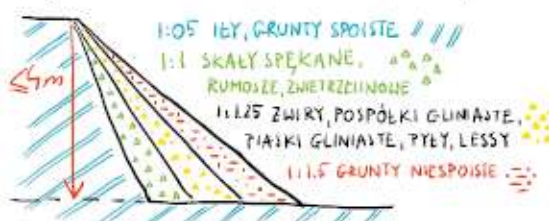 1:05 IŁY, GRUNTY SPOISTE
1:1 SKAŁY SPĘKANE,
RUMOSZE, ZWIETRZELINOWE
1:1.25 ŻWIRY, POSPÓŁKI GLINIASTE,
PIASKI GLINIASTE, PYŁY, LESSY
1:1.5 GRUNTY NIESPOISTE
≤4m